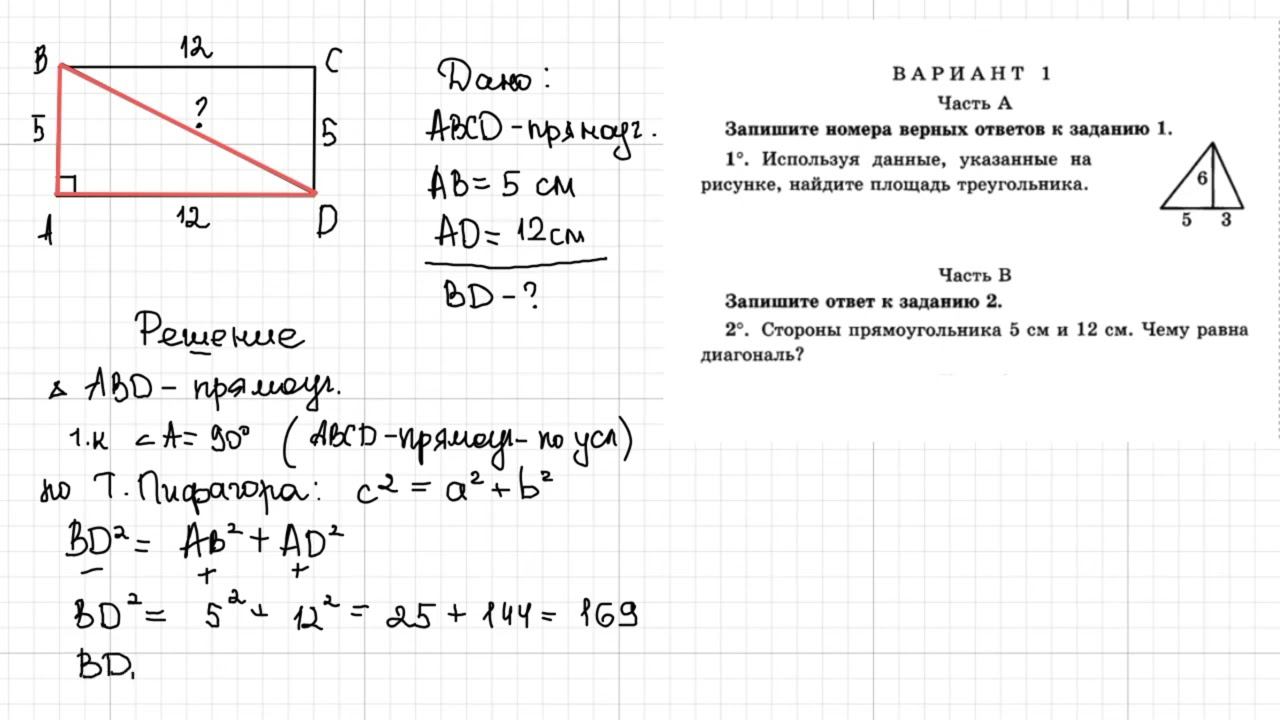 12
B
C
5
?
5
A
12
D
Дано:
ABCD - прямоуг.
AB = 5 см
AD = 12 см
BD - ?
Решение
△ ABD - прямоуг.
т.к ∠A = 90° (ABCD - прямоуг - по усл)
по Т. Пифагора: c² = a² + b²
BD² = AB² + AD²
+ +
BD² = 5² + 12² = 25 + 144 = 169
BD,
ВАРИАНТ 1
Часть А
Запишите номера верных ответов к заданию 1.
1°. Используя данные, указанные на
рисунке, найдите площадь треугольника.
6
5 3
Часть В
Запишите ответ к заданию 2.
2°. Стороны прямоугольника 5 см и 12 см. Чему равна
диагональ?